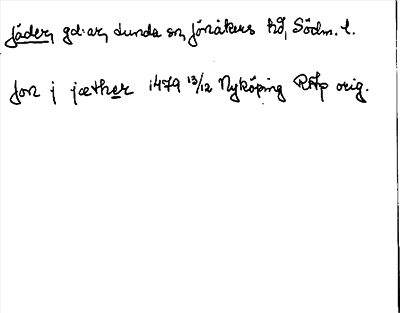 Jäder, gd:ar, Lunda sn, Jönåkers hd, Södm. l.
Jon j jæther 1479 13/12 Nyköping RAp orig.